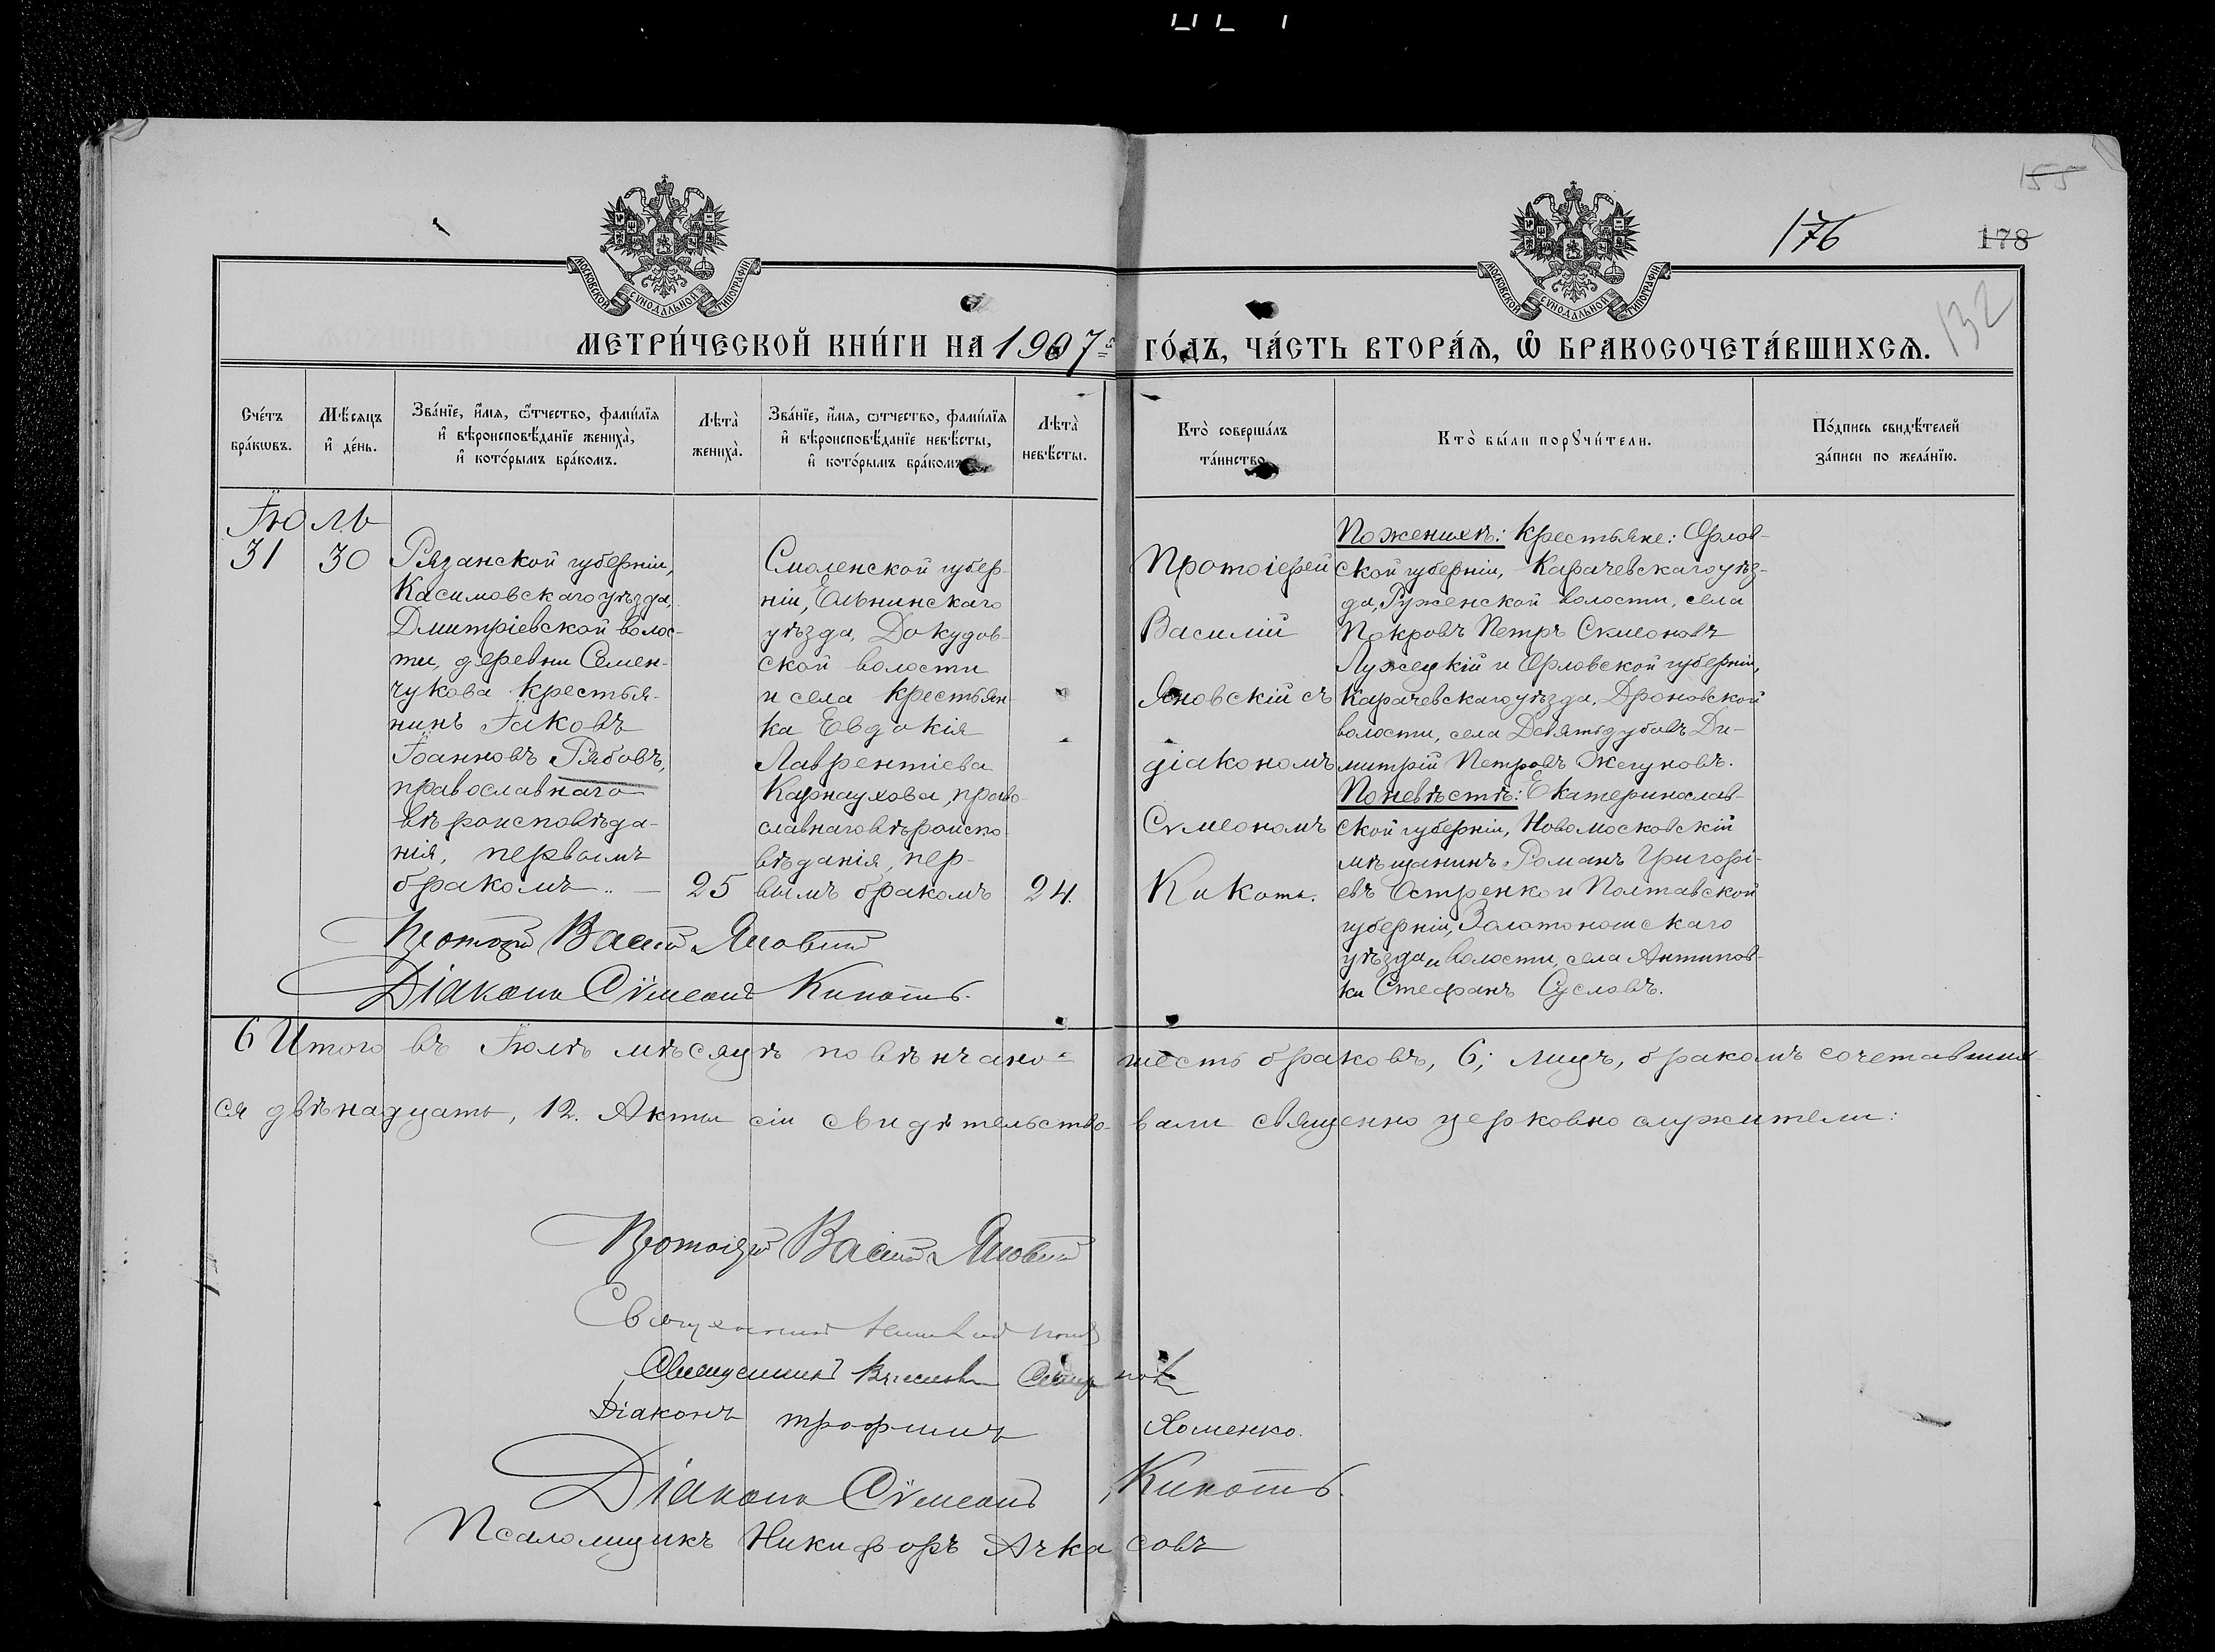 155
176
178
132
МОСКОВСКОЙ СѴНОДАЛЬНОЙ ТИПОГРАФІИ
МОСКОВСКОЙ СѴНОДАЛЬНОЙ ТИПОГРАФІИ
МЕТРИ́ЧЕСКОЙ КНИ́ГИ НА 1907 ГО́ДЪ, ЧА́СТЬ ВТОРА́Ѧ, Ѡ҆ БРАКОСОЧЕТА́ВШИХСѦ.
Сче́тъ бра́кѡвъ.
Мѣ́сяцъ и҆ де́нь.
Зва́нїе, и҆́мѧ, ѻ҆́тчество, фами́лїѧ
и҆ вѣроисповѣ́данїе жениха̀,
и҆ кото́рымъ бра́комъ.
Лѣта̀ жениха̀.
Зва́нїе, и҆́мѧ, ѻтчество, фами́лїѧ
и҆ вѣроисповѣ́данїе невѣ́сты,
и҆ кото́рымъ бра́комъ
Лѣта̀ невѣ́сты.
Кто̀ соверша́лъ та́инство
Кто̀ бы́ли порꙋчи́тели.
По́дпись свидѣ́телей за́писи по жела́нїю.
Іюль
31
30
Рязанской губерніи,
Касимовскаго уѣзда,
Дмитріевской волос-
ти, деревни Семен-
чукова крестья-
нинъ Іаковъ
Іоанновъ Рябовъ,
православнаго
вѣроисповѣда-
нія, первымъ
бракомъ. —
25
Смоленской губер-
ніи, Ельнинскаго
уѣзда, Докудов-
ской волости
и села крестьян-
ка Евдокія
Лаврентіева
Карнаухова, право-
славнаго вѣроиспо-
вѣданія, пер-
вымъ бракомъ
24.
Протоіерей
Василій
Яновскій съ
діакономъ
Сѵмеономъ
Кикоть.
По женихѣ: крестьяне: Орлов-
ской губерніи, Карачевскаго уѣз-
да, Руженской волости, села
Покровъ Петръ Симеоновъ
Лужецкій и Орловской губерніи,
Карачевскаго уѣзда, Дроновской
волости, села Девятьдубовъ Ди-
митрій Петровъ Жегуновъ.
По невѣстѣ: Екатеринослав-
ской губерніи, Новомосковскій
мѣщанинъ Романъ Григорі-
евъ Остренко и Полтавской
губерніи, Золотоношскаго
уѣзда и волости, села Антипов-
ки Стефанъ Сусловъ.
Протоіерей Василій Яновскій
Діаконъ Сѵмеонъ Кикоть.
6 Итого въ Іюлѣ мѣсяцѣ повѣнчано шесть браковъ, 6; лицъ, бракомъ сочетавших
ся двѣнадцать, 12. Акты сіи свидѣтельствовали священно церковно служители:
Протоіерей Василій Яновскій
Священникъ
Священникъ
Діаконъ Трофимъ Хоменко.
Діаконъ Сѵмеонъ Кикоть.
Псаломщикъ Никифоръ Ачкасовъ